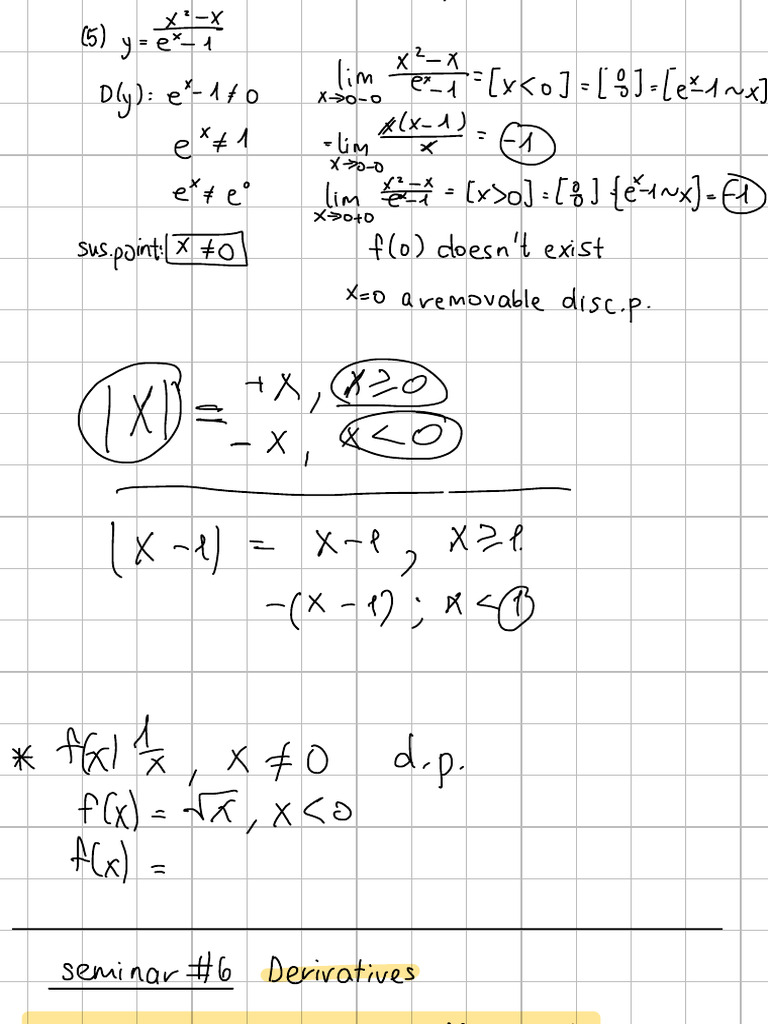 (5) y = (x² - x)/(eˣ - 1)
D(y): eˣ - 1 ≠ 0
eˣ ≠ 1
eˣ ≠ e⁰
sus.point: x ≠ 0
lim x→0-0 (x² - x)/(eˣ - 1) = [x < 0] = [0/0] = [eˣ - 1 ~ x]
= lim x→0-0 x(x - 1)/x = -1
lim x→0+0 (x² - x)/(eˣ - 1) = [x > 0] = [0/0] = [eˣ - 1 ~ x] = -1
f(0) doesn't exist
x = 0 a removable disc.p.
|x| = +x, x ≥ 0
- x, x < 0
|x - 1| = x - 1, x ≥ 1
-(x - 1); x < 1
* f(x) 1/x, x ≠ 0 d.p.
f(x) = √x, x < 0
f(x) =
seminar #6 Derivatives